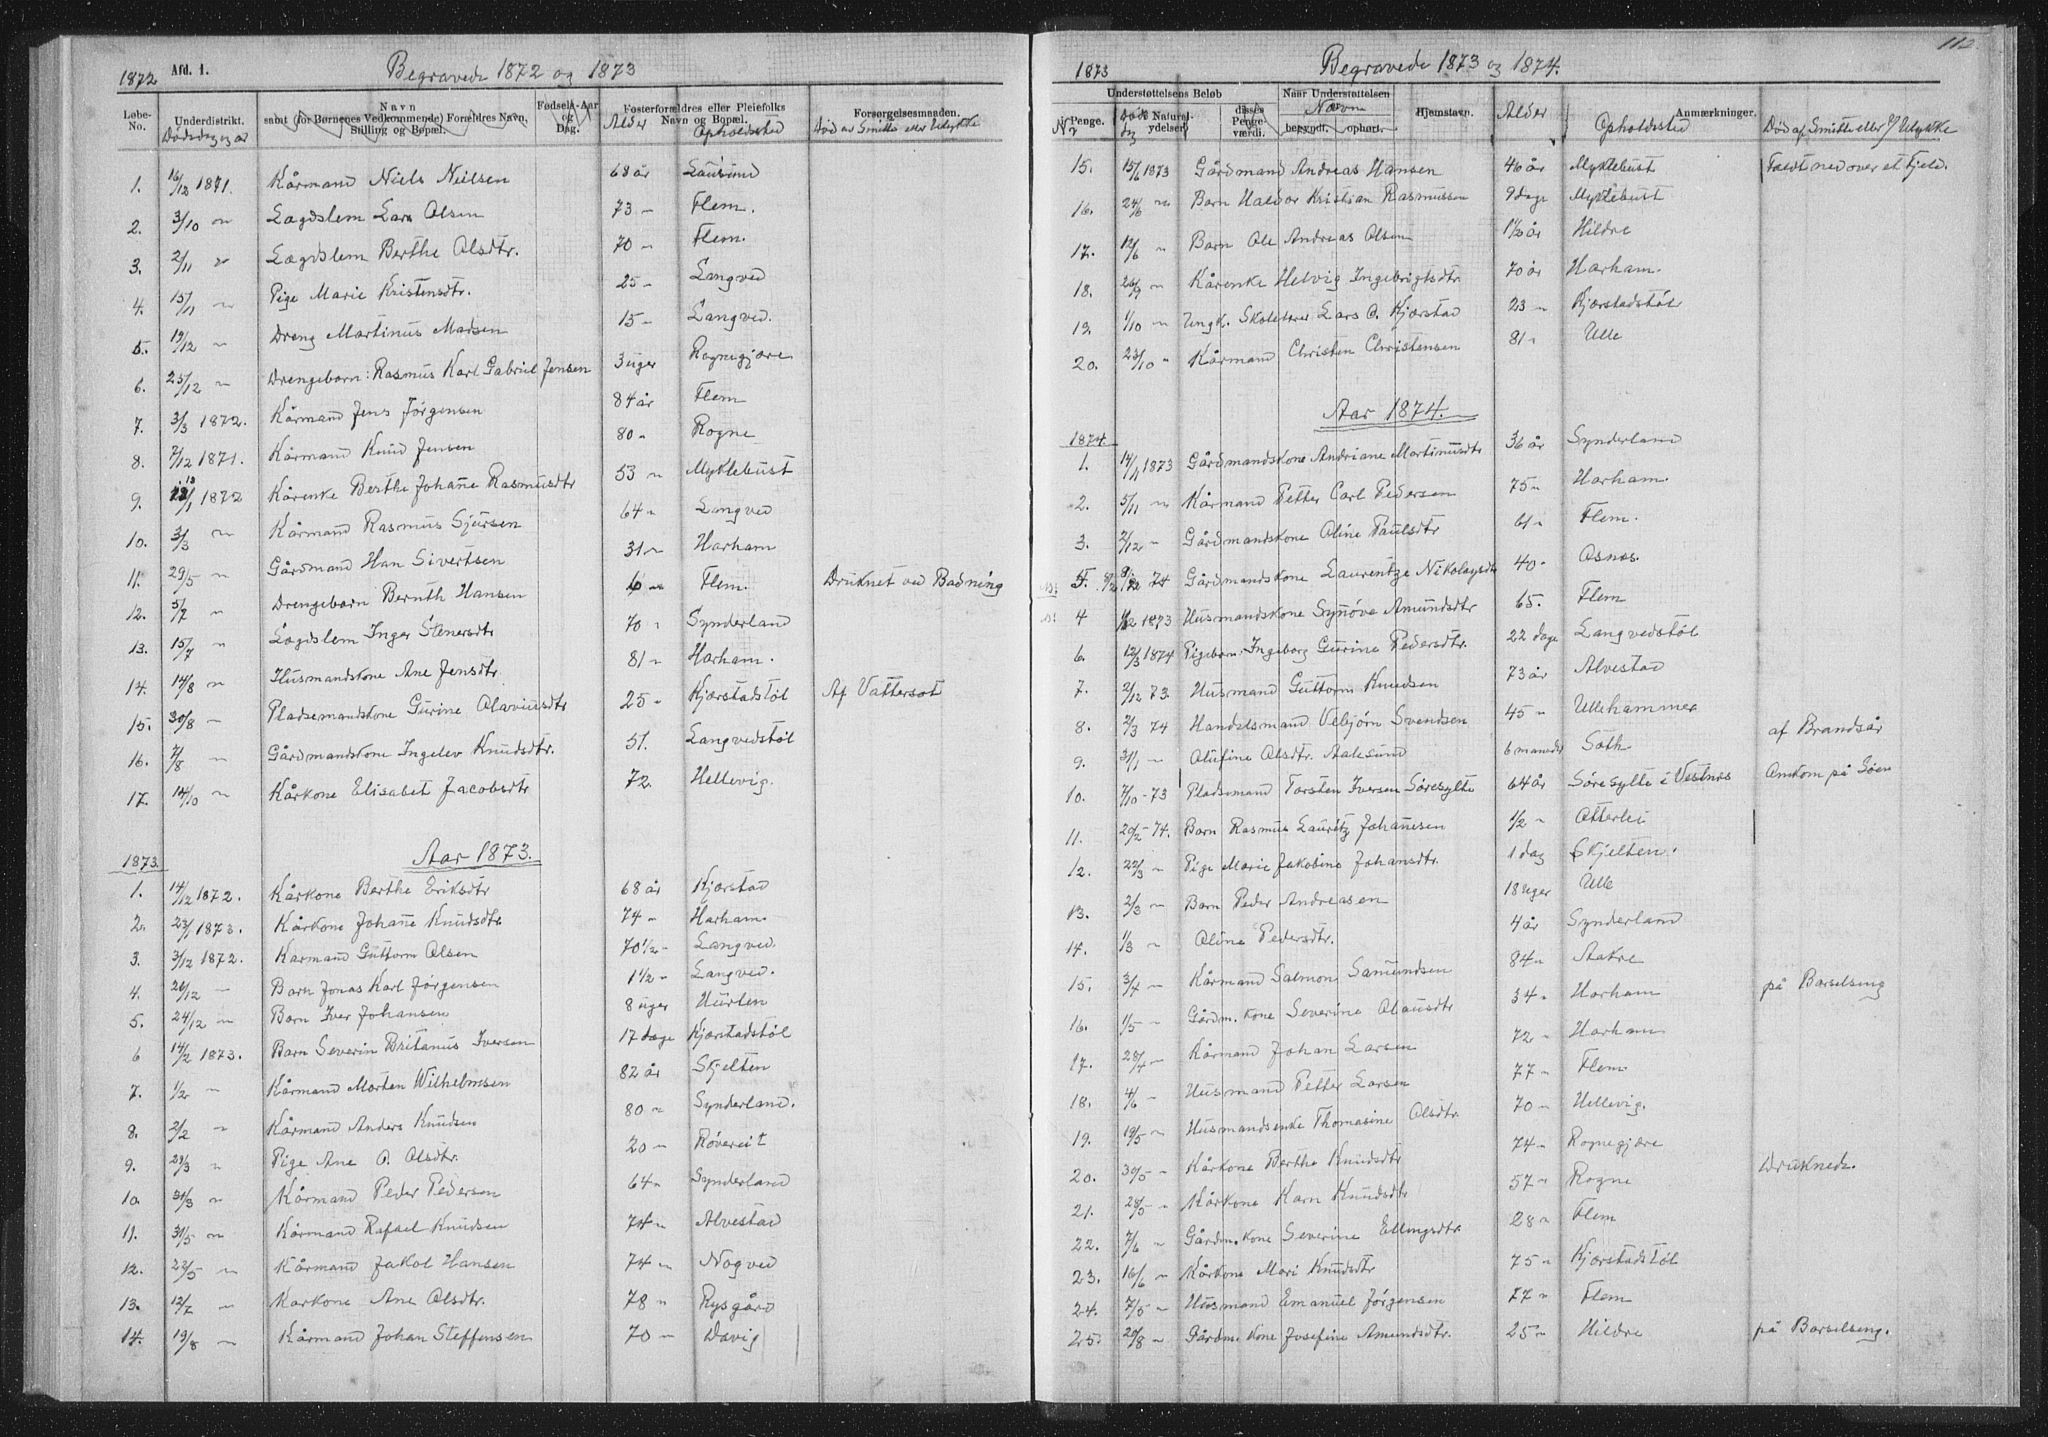 1872 Afd. 1. Begravede 1872 og 1873
Løbe-No. Underdistrikt. Navn samt (for Børnenes Vedkommende) Forældres Navn, Stilling og Bopæl. Fødsels-Aar og Dag. Fosterforældres eller Pleiefolks Navn og Bopæl. Forsørgelsesmaaden.
Dødsdag og år Alder Opholdssted Død av Smitte eller Ulykke
1. 16/12 1871. Kårmand Niels Nielsen 68 år Lausund
2. 3/10 " Lægdslem Lars Olsen 73 " Flem.
3. 2/11 " Lægdslem Berthe Olsdtr. 70 " Flem.
4. 15/11 " Pige Marie Kristensdtr. 25 " Langved
5. 19/12 " Dreng Martinus Madsen 15 " Langved.
6. 25/12 " Drengebarn: Rasmus Karl Gabriel Jensen 3 uger Rognegjære
7. 3/3 1872. Kårmand Jens Jørgensen 84 år Flem
8. 7/12 1871. Kårmand Knud Jensen 80 " Rogne
9. 13/1 1872 Kårenke Berthe Johañe Rasmusdtr 53 " Myklebust
10. 3/3 " Kårmand Rasmus Sjursen 64 " Langved
11. 29/5 " Gårdmand Han Sivertsen 31 " Harham
12. 5/7 " Drengebarn Bernth Hansen 6 " Flem. Druknet ved Badning
13. 15/7 " Lægdslem Inger Stenersdtr 70 " Synderland
14. 14/8 " Husmandskone Ane Jensdtr 81 " Harham.
15. 30/8 " Pladsemandskone Gurine Olaviusdtr 25 " Kjærstadstøl Af Vattersot
16. 7/8 " Gårdmandskone Ingelev Knudsdtr. 51. Langvedstøl
17. 14/10 " Kårkone Elisabet Jacobsdtr 72. Hellevig.
1873. Aar 1873.
1. 14/12 1872. Kårkone Berthe Eriksdtr 68 år Kjærstad
2. 23/1 1873. Kårkone Johañe Knudsdtr 74 " Harham.
3. 3/12 1872. Karmand Guttorm Olsen 70 1/2 " Langved.
4. 26/12 " Barn Jonas Karl Jørgensen 1 1/2 " Langved.
5. 24/12 " Barn Iver Johansen 8 uger Hurlen
6 14/2 1873. Barn Severin Britanus Iversen 17 dage Kjærstadstøl
7. 1/2 " Kårmand Morten Wilhelmsen 82 år Skjelten
8. 2/2 " Kårmand Anders Knudsen 80 " Synderland.
9. 29/3 " Pige Ane O. Olsdtr. 20 " Røvereit
10. 31/3 " Kårmand Peder Pedersen 64 " Synderland
11. 31/5 " Kårmand Rafael Knudsen 74 " Alvestad
12. 22/5 " Kårmand Jakob Hansen 74 " Nogved
13. 12/7 " Karkone Ane Olsdtr. 78 " Rysgård
14. 19/8 " Kårmand Johan Steffensen 70 " Davig
112.
1873 Begravede 1873 og 1874.
Understøttelsens Beløb Naar Understøttelsen Hjemstavn. Alder Anmærkninger.
i Penge. i Naturalydelser. disses Pengeværdi. Navn begyndt. ophørt. Opholdssted Død af Smitte eller af Ulykke
15. 15/6 1873 Gårdmand Andreas Hansen 46 år Myklebust Faldt ned over et Fjeld.
16. 24/6 " Barn Haldor Kristian Rasmussen 9 dage Myklebust
17. 12/6 " Barn Ole Andreas Olsen 1 1/2 år Hildre
18. 26/9 " Kårenke Helvig Ingebrigtsdtr 70 år Harham.
19. 1/10 " Ungk. Skolelærer Lars O. Kjærstad 23 " Kjærstadstøl
20. 23/10 " Kårmand Christen Christensen 81 " Ulle
Aar 1874.
1874.
1. 14/11 1873 Gårdmandskone Andriane Martinusdtr 36 år Synderland
2. 5/11 " Kårmand Petter Carl Pedersen 75 " Harham.
3. 2/12 " Gårdmandskone Oline Paulsdtr 61 " Flem.
5. 8/2 74 Gårdmandskone Laurentze Nikolaysdtr 40 " Osnæs.
4 1873 Husmandskone Synøve Amundsdtr 65. Flem
6. 12/3 1874 Pigebarn: Ingeborg Gurine Pedersdtr. 22 dage Langvedstøl
7. 2/12 73. Husmand Guttorm Knudsen 73 år Alvestad
8. 2/3 74 Handelsmand Vebjørn Svendsen 45 " Ullehammer
9. 31/1 " Olufine Olsdtr. Aalesund 6 maneder Søth af Brandsår
10. 7/10 - 73 Pladsemand Torsten Iversen Søresylte 64 år Søresylte i Vestnes Omkom på Søen
11. 20/2 - 74. Barn Rasmus Lauritz Johañesen 1/2 " Otterlei
12. 22/3 " Pige Marie Jakobine Johansdtr. 1 dag Skjelten.
13. 2/3 " Barn Peder Andreasen 18 uger Ulle
14. 1/3 " Oline Pedersdtr. 4 år Synderland
15. 3/4 " Kårmand Salmon Samundsen 84 " Aakre
16. 1/5 " Gårdm. kone Severine Olausdtr 34 " Harham på Barselseng
17. 28/4 " Kårmand Johan Larsen 72 " Harham
18. 4/6 " Husmand Petter Larsen 77 " Flem
19. 19/5 " Husmandsenke Thomasine Olsdtr. 70 " Hellevig.
20. 30/5 " Kårkone Berthe Knudsdtr 74 " Rognegjære
21. 28/5 " Kårkone Karn Knudsdtr 57 " Rogne Druknede.
22. 7/6 " Gårdm. kone Severine Ellingsdtr 28 " Flem
23. 16/6 " Kårkone Mari Knudsdtr 75 " Kjærstadstøl
24. 7/5 " Husmand Emanuel Jørgensen 77 " Flem
25. 29/8 " Gårdm. Kone Josefine Amundsdtr. 25 " Hildre på Barselseng.